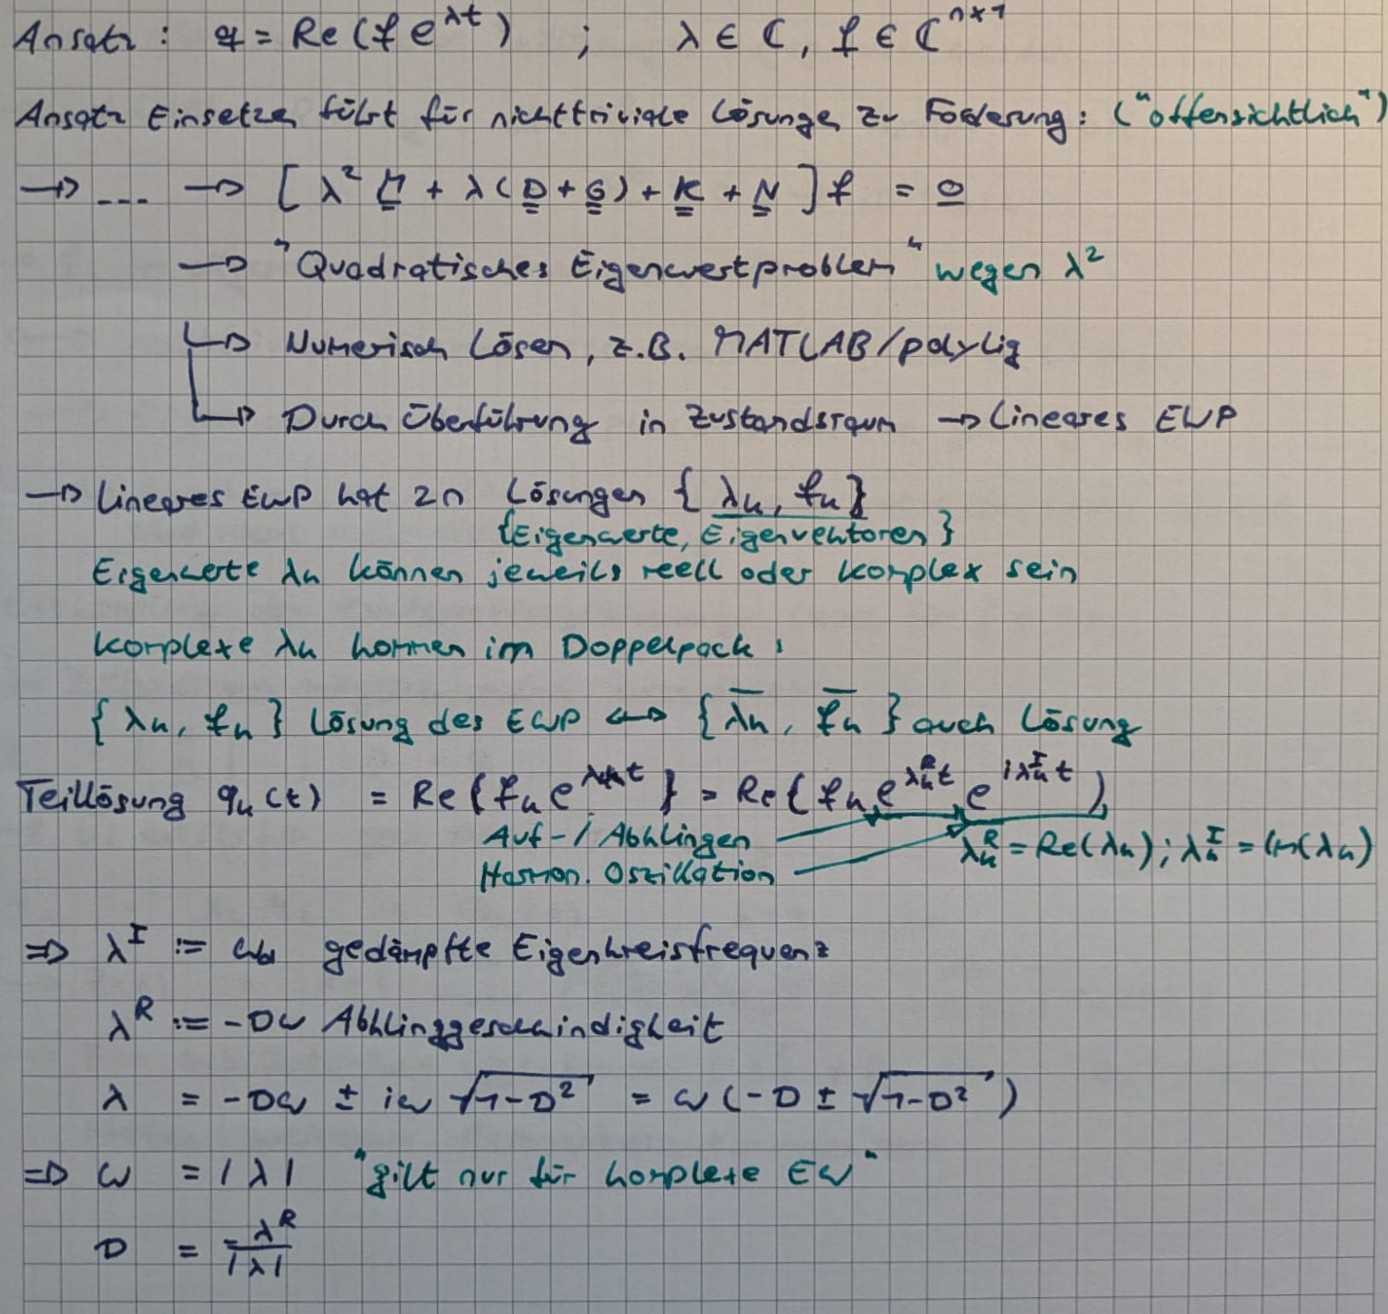 Ansatz: q = Re(f e^{λt}) ; λ ∈ ℂ, f ∈ ℂ^{n×1}
Ansatz Einsetzen führt für nichttriviale Lösungen zu Foderung: ("offensichtlich")
→ ... → [λ² M + λ(D + G) + K + N] f = 0
→ "Quadratisches Eigenwertproblem" wegen λ²
↳ Numerisch Lösen, z.B. MATLAB/polyeig
↳ Durch Überführung in Zustandsraum → Lineares EWP
→ Lineares EWP hat 2n Lösungen {λₖ, fₖ}
{Eigenwerte, Eigenvektoren}
Eigenwerte λₖ können jeweils reell oder komplex sein
Komplexe λₖ kommen im Doppelpack:
{λₖ, fₖ} Lösung des EWP ↔ {λ̄ₖ, f̄ₖ} auch Lösung
Teillösung qₖ(t) = Re{fₖ e^{λₖt}} = Re{fₖ e^{λₖᴿt} e^{iλₖᴵt})
Auf-/Abklingen
λₖᴿ = Re(λₖ); λₖᴵ = Im(λₖ)
Harmon. Oszillation
⇒ λᴵ := ω_d gedämpfte Eigenkreisfrequenz
λᴿ := -Dω Abklinggeschwindigkeit
λ = -Dω ± iω √(1-D²) = ω(-D ± √(1-D²))
⇒ ω = |λ| "gilt nur für komplexe EW"
D = -λᴿ/|λ|